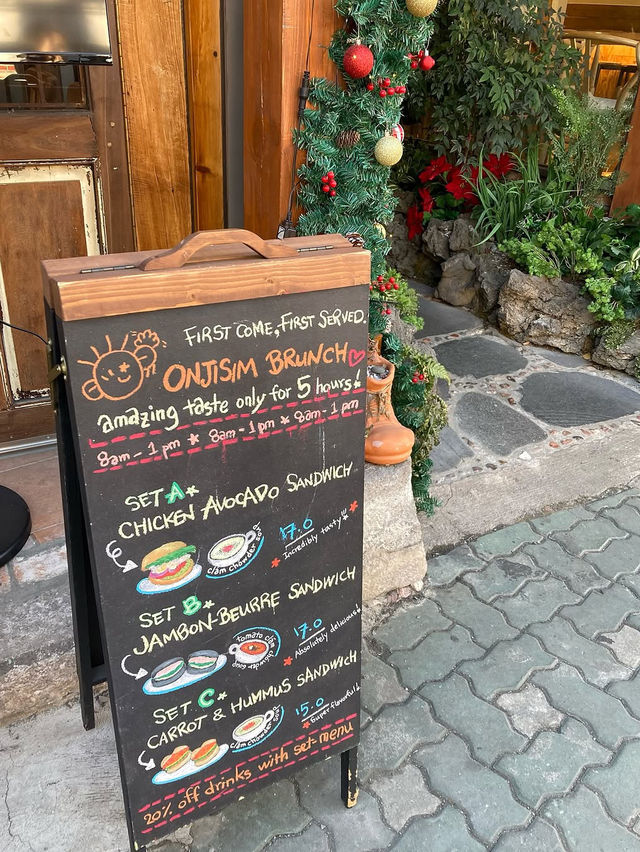 FIRST COME, FIRST SERVED.
ONJISIM BRUNCH
amazing taste only for 5 hours!
8am - 1pm * 8am - 1pm * 8am - 1pm
SET A*
CHICKEN AVOCADO SANDWICH
clam chowder soup
17.6
Incredibly tasty!
SET B*
JAMBON-BEURRE SANDWICH
tomato clam chowder soup
17.0
Absolutely delicious!
SET C*
CARROT & HUMMUS SANDWICH
clam chowder soup
15.0
Super flavorful!
20% off drinks with set-menu